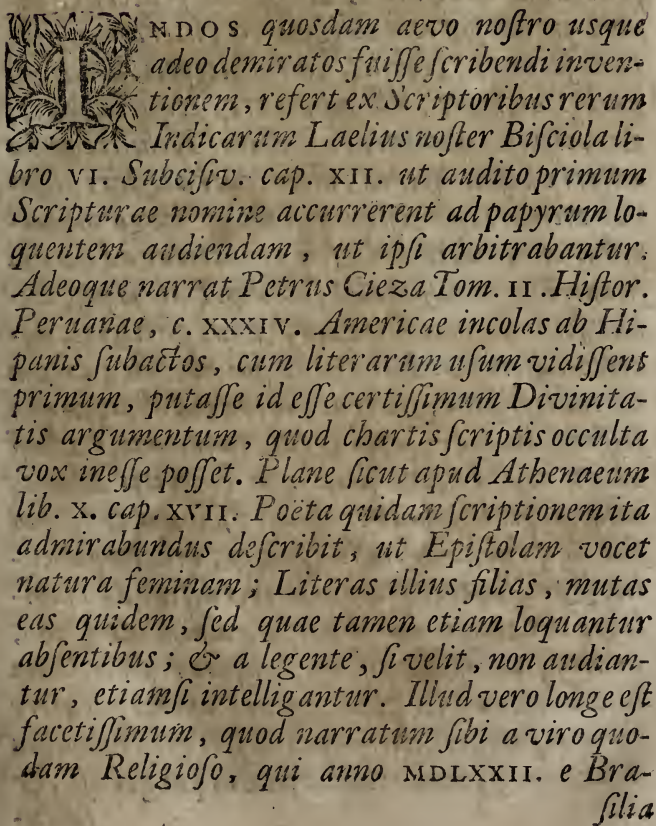 INDOS quosdam aevo noſtro usque
adeo demiratos fuiſſe ſcribendi inven-
tionem, refert ex Scriptoribus rerum
Indicarum Laelius noſter Biſciola li-
bro VI. Subciſiv. cap. XII. ut audito primum
Scripturae nomine accurrerent ad papyrum lo-
quentem audiendam, ut ipſi arbitrabantur.
Adeoque narrat Petrus Cieza Tom. II. Hiſtor.
Peruanae, c. XXXIV. Americae incolas ab Hi-
panis ſubactos, cum literarum uſum vidiſſent
primum, putaſſe id eſſe certiſſimum Divinita-
tis argumentum, quod chartis ſcriptis occulta
vox ineſſe poſſet. Plane ſicut apud Athenaeum
lib. X. cap. XVII. Poëta quidam ſcriptionem ita
admirabundus deſcribit, ut Epiſtolam vocet
natura feminam; Literas illius filias, mutas
eas quidem, ſed quae tamen etiam loquantur
abſentibus; & a legente, ſi velit, non audian-
tur, etiamſi intelligantur. Illud vero longe eſt
facetiſſimum, quod narratum ſibi a viro quo-
dam Religioſo, qui anno MDLXXII. e Bra-
ſilia